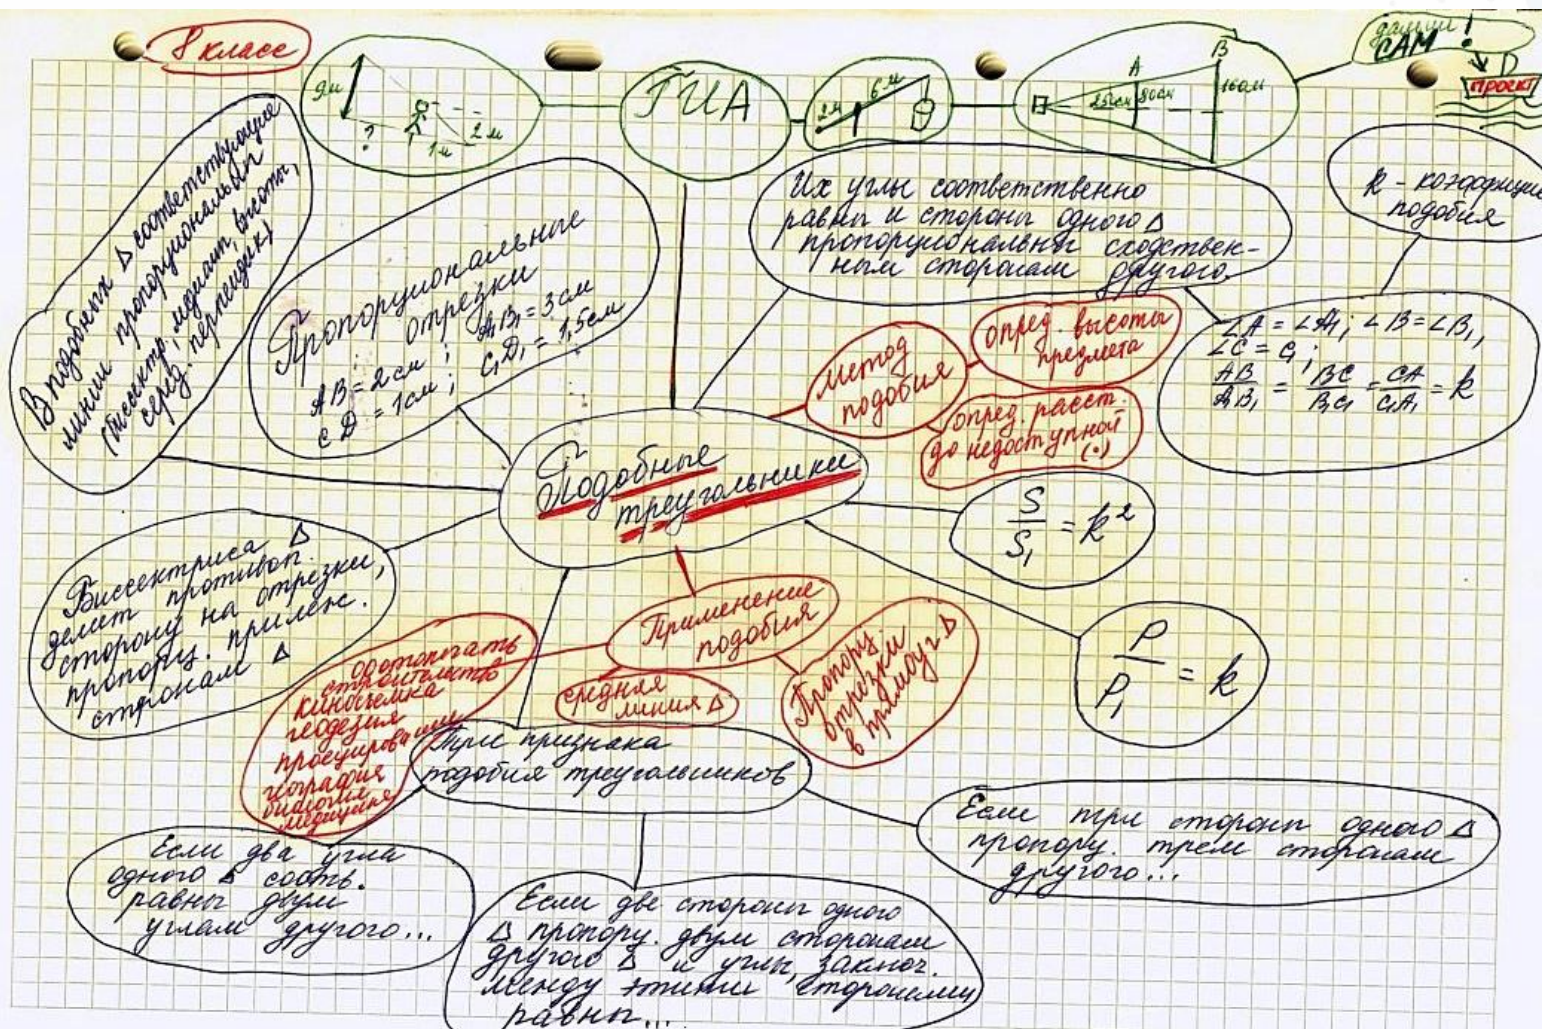 8 класс
9м
?
1м
2м
ГИА
2м
6м
А
В
250см
80см
160см
дальше!
САМ
проект
В подобных Δ соответствующие
линии пропорциональны
(биссектр., медиан, высоты,
серед. перпендик)
Пропорциональные
отрезки
AB = 2см ; A₁B₁ = 3см
CD = 1см ; C₁D₁ = 1,5см
Их углы соответственно
равны и стороны одного Δ
пропорциональны сходствен-
ным сторонам другого
k - коэффицие
подобия
∠A = ∠A₁; ∠B = ∠B₁,
∠C = C₁;
AB/A₁B₁ = BC/B₁C₁ = CA/C₁A₁ = k
Метод
подобия
опред. высоты
предмета
опред. расст.
до недоступной
(·)
Подобные
треугольники
S/S₁ = k²
P/P₁ = k
Биссектриса Δ
делит противоп.
сторону на отрезки,
пропорц. прилеж.
сторонам Δ
Применение
подобия
средняя
линия Δ
Пропорц
отрезки
в прямоуг Δ
строительство
киносъемка
геодезия
проецирование
география
биология
медицина
Три признака
подобия треугольников
Если два угла
одного Δ соотв.
равны двум
углам другого...
Если две стороны одного
Δ пропорц. двум сторонам
другого Δ и углы, заключ.
между этими сторонами
равны...
Если три стороны одного Δ
пропорц. трем сторонам
другого...